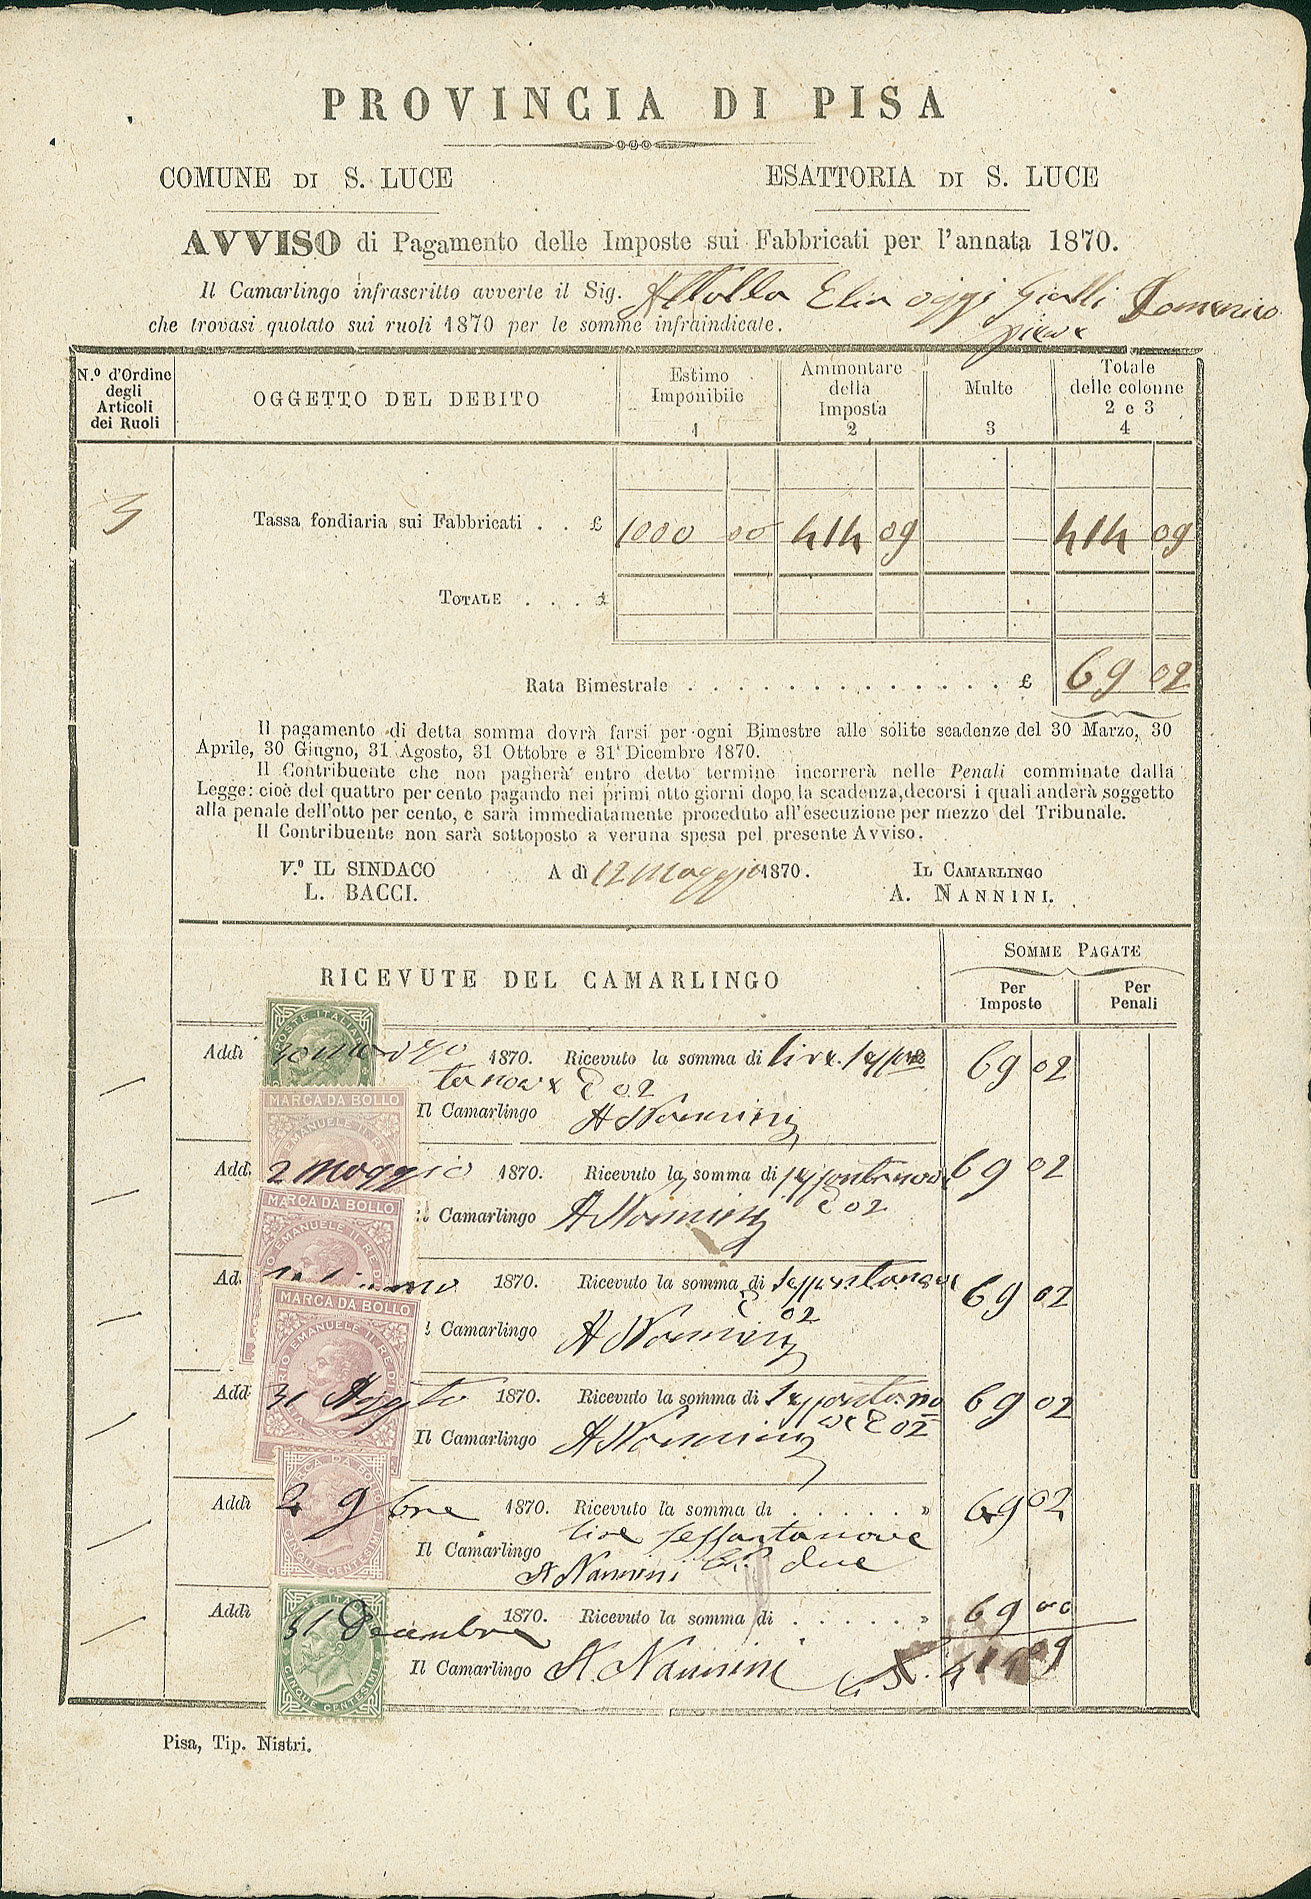 PROVINCIA DI PISA
COMUNE DI S. LUCE
ESATTORIA DI S. LUCE
AVVISO di Pagamento delle Imposte sui Fabbricati per l'annata 1870.
Il Camarlingo infrascritto avverte il Sig. Attalla Elia oggi Gialli Domenico
che trovasi quotato sui ruoli 1870 per le somme infraindicate.
N.º d'Ordine degli Articoli dei Ruoli
OGGETTO DEL DEBITO
Estimo Imponibile 1
Ammontare della Imposta 2
Multe 3
Totale delle colonne 2 e 3 4
3
Tassa fondiaria sui Fabbricati . . £ 1000 00 414 09 414 09
TOTALE . . . £
Rata Bimestrale . . . . . . . . . . . . . . £ 69 02
Il pagamento di detta somma dovrà farsi per ogni Bimestre alle solite scadenze del 30 Marzo, 30
Aprile, 30 Giugno, 31 Agosto, 31 Ottobre e 31 Dicembre 1870.
Il Contribuente che non pagherà entro detto termine incorrerà nelle Penali comminate dalla
Legge: cioè del quattro per cento pagando nei primi otto giorni dopo la scadenza, decorsi i quali anderà soggetto
alla penale dell'otto per cento, e sarà immediatamente proceduto all'esecuzione per mezzo del Tribunale.
Il Contribuente non sarà sottoposto a veruna spesa pel presente Avviso.
V.º IL SINDACO
L. BACCI.
A dì 12 Maggio 1870.
IL CAMARLINGO
A. NANNINI.
RICEVUTE DEL CAMARLINGO
SOMME PAGATE
Per Imposte
Per Penali
POSTE ITALIANE
Addì 30 marzo 1870. Ricevuto la somma di lire sessan 69 02
tanove £ 02
MARCA DA BOLLO
Il Camarlingo A Nannini
EMANUELE II RE
Add. 2 Maggio 1870. Ricevuto la somma di sessantanove 69 02
£ 02
MARCA DA BOLLO
Camarlingo A Nannini
EMANUELE II RE
Ad. 1870. Ricevuto la somma di sessantanove 69 02
£ 02
MARCA DA BOLLO
Camarlingo A Nannini
EMANUELE II RE
Add. 31 Agosto 1870. Ricevuto la somma di sessantano 69 02
ve £ 02
Il Camarlingo A Nannini
MARCA DA BOLLO
Addì 2 9bre 1870. Ricevuto la somma di . . . . . . » 69 02
lire sessantanove
Il Camarlingo
A Nannini due
CINQUE CENTESIMI
Addì 31 Decembre 1870. Ricevuto la somma di . . . . . . » 69 00
Il Camarlingo A. Nannini
CINQUE CENTESIMI
Pisa, Tip. Nistri.